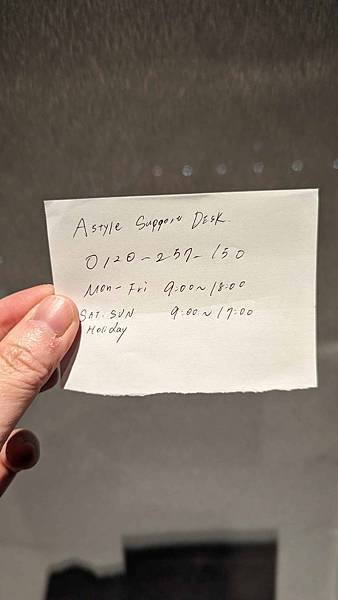 Astyle Support Desk.
0120-257-150
Mon-Fri 9:00~18:00
SAT. SUN 9:00~17:00
Holiday